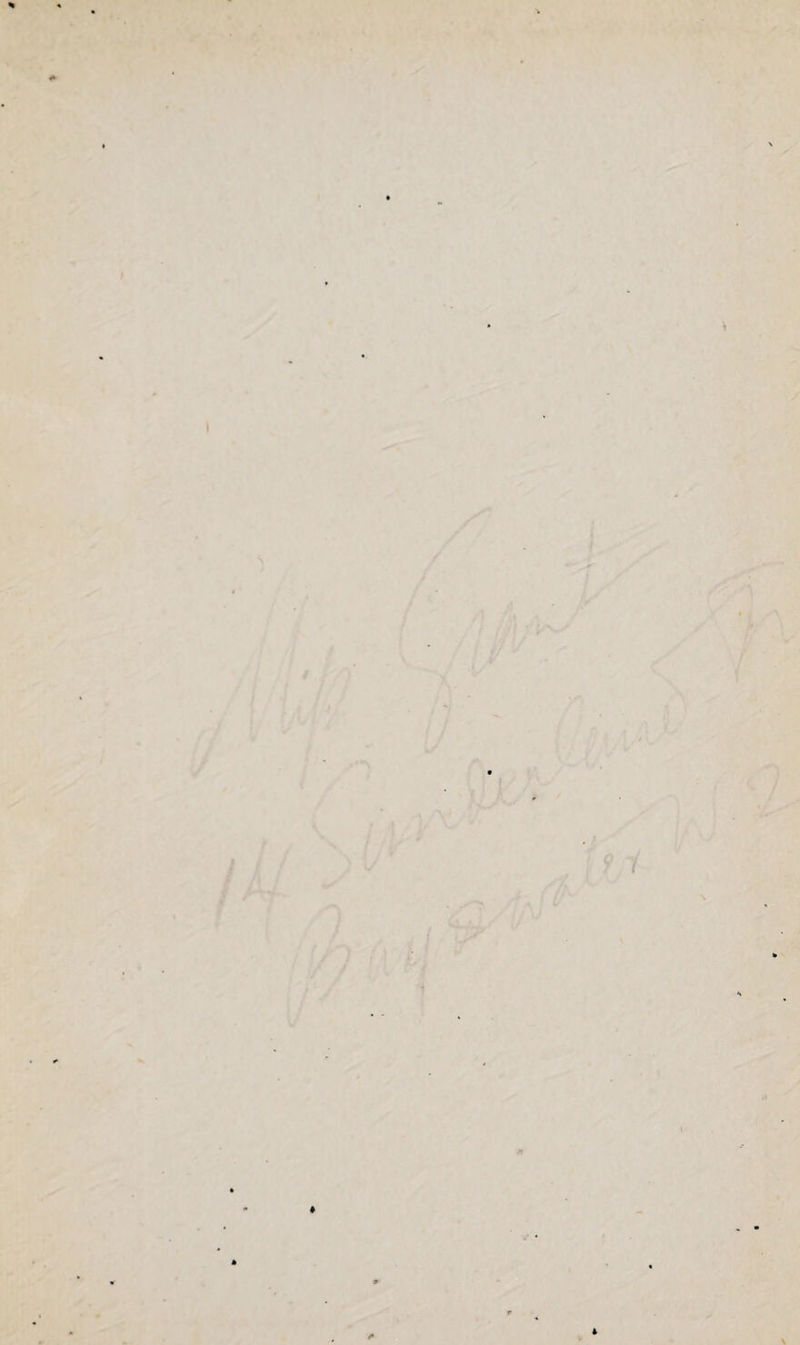 Miss Grant
14 Sunderland Tr
Bayswater W 2